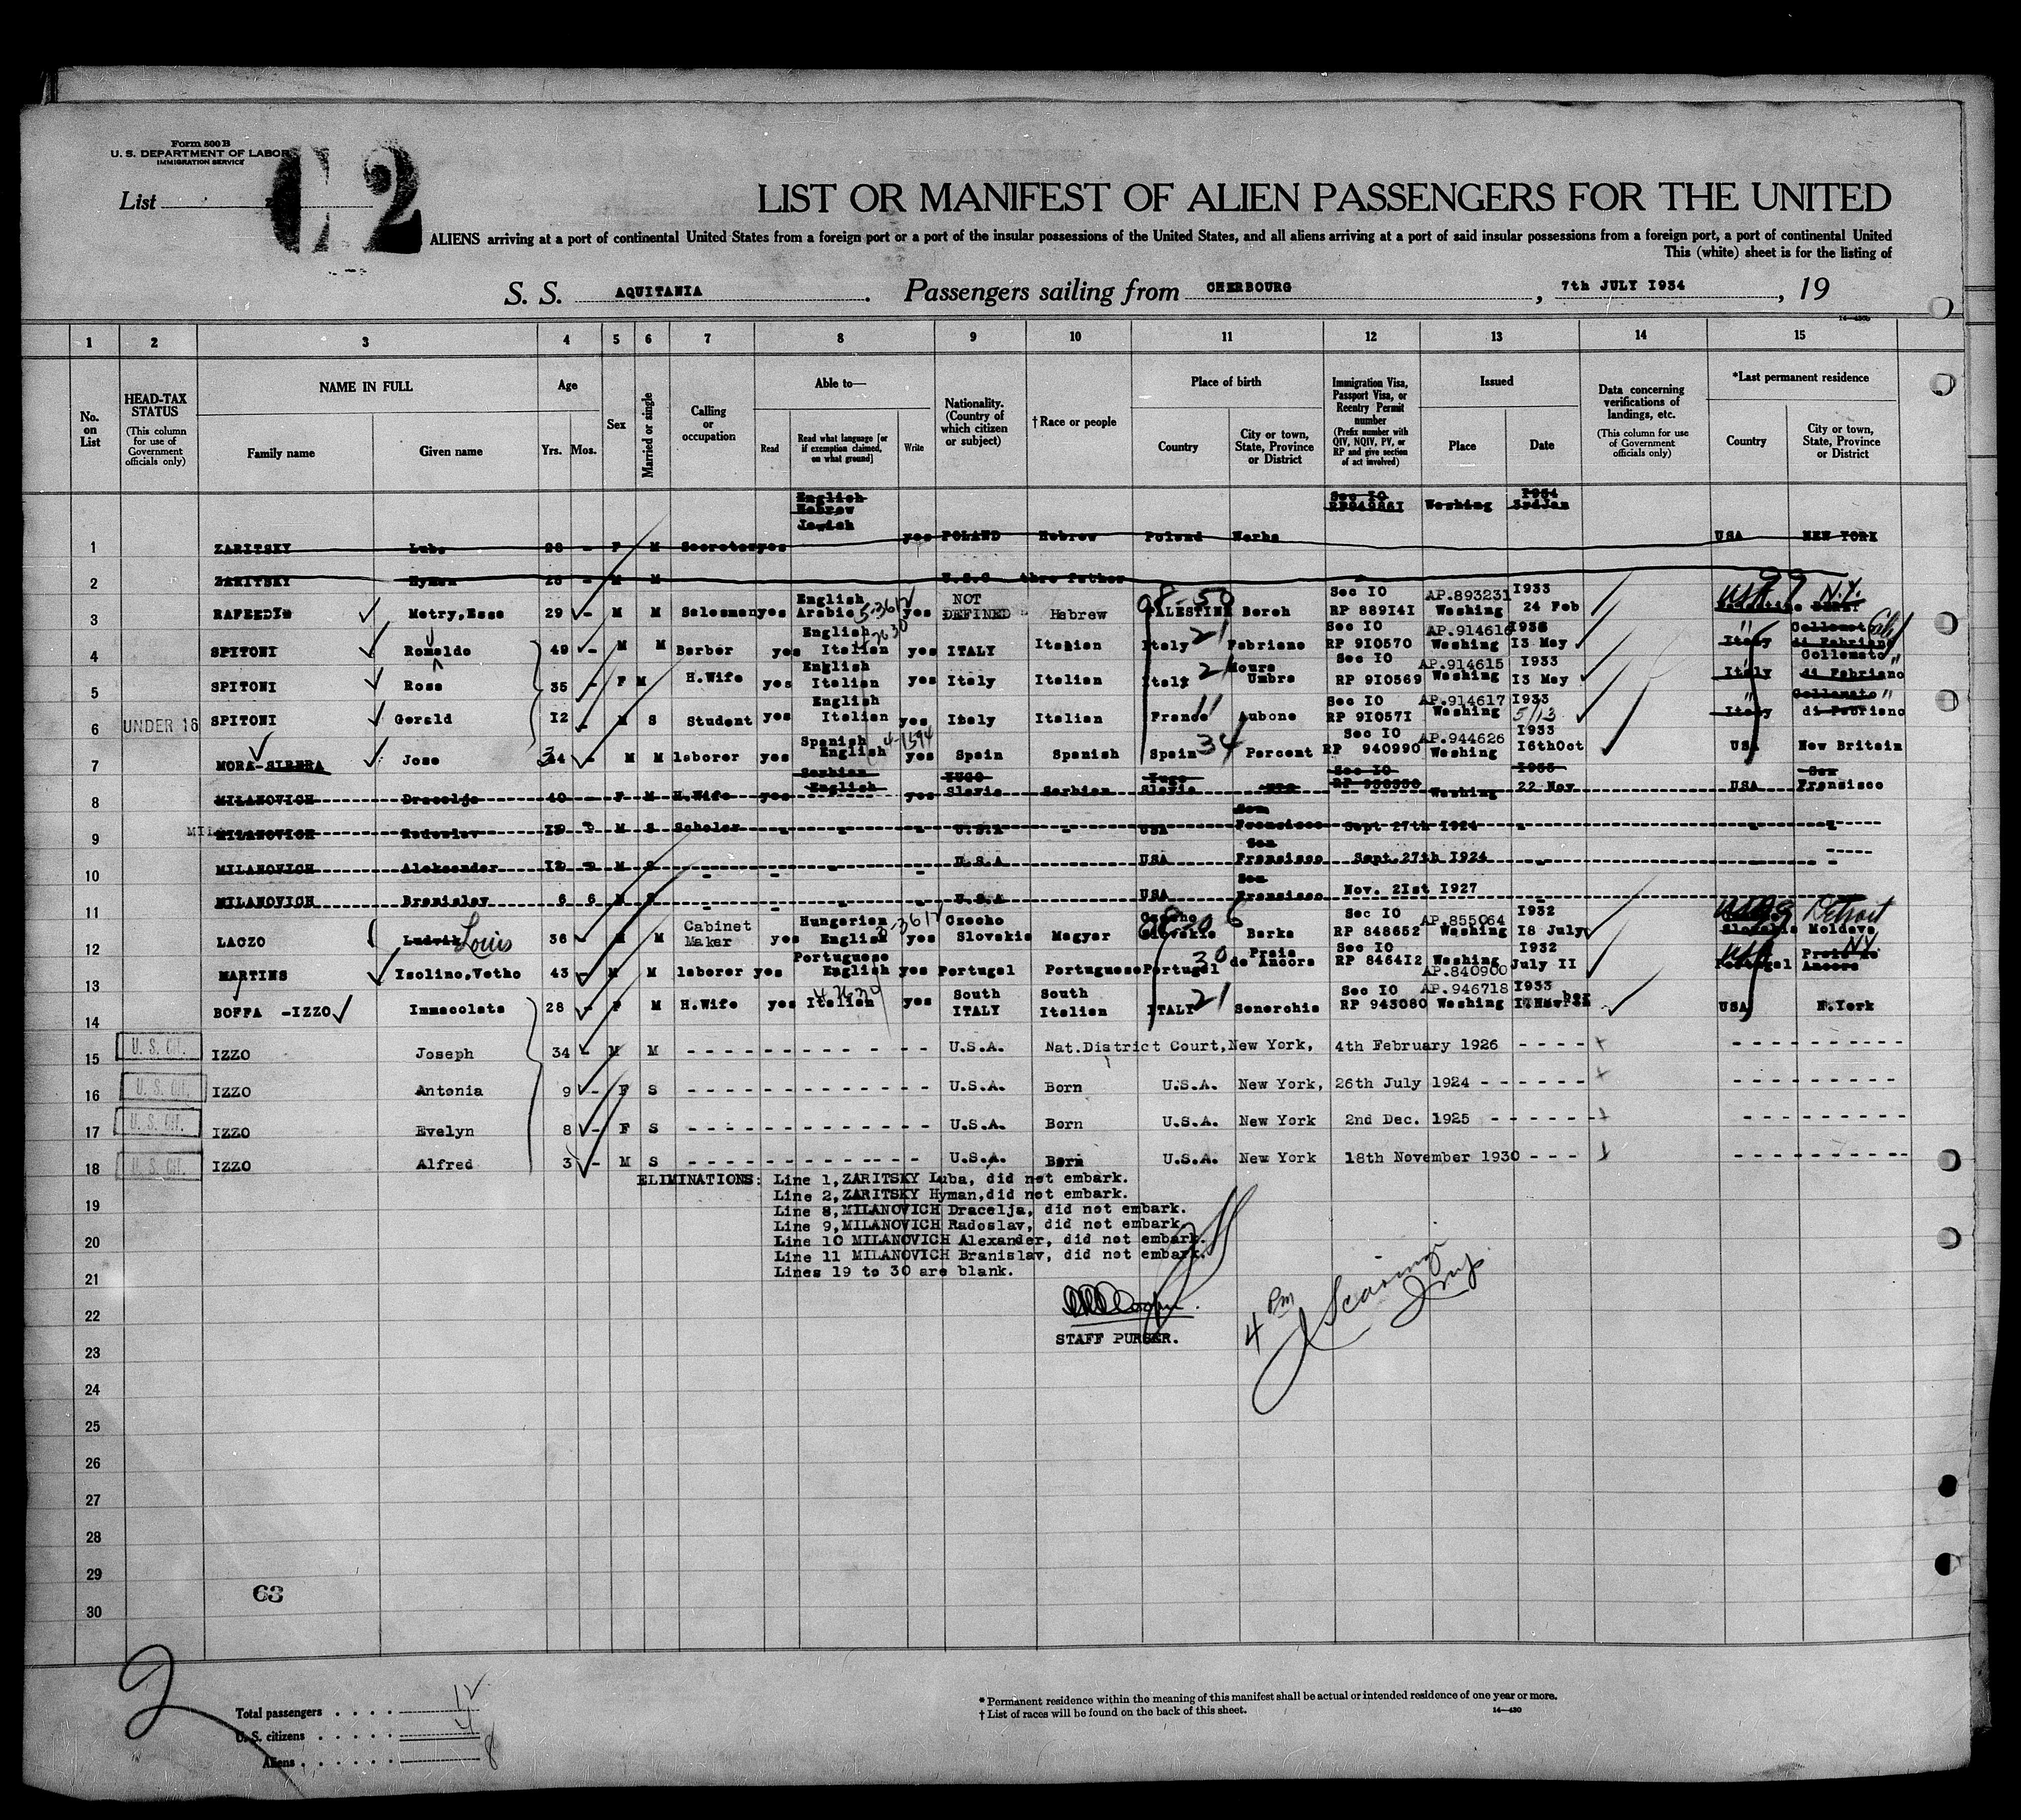 Form 500 B
U. S. DEPARTMENT OF LABOR
IMMIGRATION SERVICE
List
C2
LIST OR MANIFEST OF ALIEN PASSENGERS FOR THE UNITED
ALIENS arriving at a port of continental United States from a foreign port or a port of the insular possessions of the United States, and all aliens arriving at a port of said insular possessions from a foreign port, a port of continental United
This (white) sheet is for the listing of
S. S. AQUITANIA. Passengers sailing from CHERBOURG, 7th JULY I934, 19
14—430b
1 2 3 4 5 6 7 8 9 10 11 12 13 14 15
No. on List
HEAD-TAX STATUS (This column for use of Government officials only)
NAME IN FULL Family name Given name
Age Yrs. Mos.
Sex
Married or single
Calling or occupation
Able to— Read Read what language [or if exemption claimed, on what ground] Write
Nationality. (Country of which citizen or subject)
†Race or people
Place of birth Country City or town, State, Province or District
Immigration Visa, Passport Visa, or Reentry Permit number (Prefix number with QIV, NQIV, PV, or RP and give section of act involved)
Issued Place Date
Data concerning verifications of landings, etc. (This column for use of Government officials only)
*Last permanent residence Country City or town, State, Province or District
1 ZARITSKY Luba 28 - F M Secretary yes English Hebrew Jewish yes POLAND Hebrew Poland Warka Sec IO RP949861 Washing 1934 3rdJan USA NEW YORK
2 ZARITSKY Hyman 28 - M M U.S.C thro father
3 RAFEEDIE Metry,Essa 29 - M M Salesman yes English Arabic 5-3612 yes NOT DEFINED Hebrew PALESTINE Bereh Sec IO RP 889I4I AP.893231 Washing I933 24 Feb USA N.Y.
4 SPITONI Romaldo 49 - M M Barber yes English Italian yes ITALY Italian Italy 21 Fabriano Sec IO RP 9I0570 AP.914616 Washing I3 May Italy Collamato di Fabriano
5 SPITONI Rosa 35 - F M H.Wife yes English Italian yes Italy Italian Italy 21 Umbra Sec IO RP 9I0569 AP.914615 Washing I933 I3 May Italy Collamato di Fabriano
6 UNDER 16 SPITONI Gerald I2 - M S Student yes English Italian yes Italy Italian France 11 Aubone Sec IO RP 9I057I AP.914617 Washing I933 5/13 Italy Collamato di Fabriano
7 MORA-SIRERA Jose 34 - M M laborer yes Spanish English 4-1594 yes Spain Spanish Spain 34 Percent Sec IO RP 940990 AP.944626 Washing I933 I6thOct USA New Britain
8 MILANOVICH Dracelja 40 - F M H.Wife yes Serbian English yes YUGO Slavia Serbian Yugo Slavia Sec IO Washing 22 Nov USA San Fransisco
9 MILANOVICH Radoslav M S Scholar - - - U.S.A - USA San Fransisco Sept 27th I924
10 MILANOVICH Aleksander M S - - - U.S.A USA San Fransisco Sept.27th I924
11 MILANOVICH Branislav 6 6 M S - - - U.S.A USA San Fransisco Nov. 2Ist I927
12 LACZO Ludvik Louis 36 - M M Cabinet Maker yes Hungarian English yes Czecho Slovakia Magyar Czecho Slovakia Barka Sec IO RP 848652 AP.855064 Washing I932 I8 July USA Detroit Slovakia Moldava
13 MARTINS Isolino,Vatho 43 - M M laborer yes Portuguese English yes Portugal Portuguese Portugal 30 Praia de Ancora Sec IO RP 8464I2 Washing AP.840900 I932 July II USA N.Y. Portugal Praia de Ancora
14 BOFFA -IZZO Immacolata 28 - F M H.Wife yes Italian yes South ITALY South Italian ITALY 21 Senerchia Sec IO RP 943080 AP.946718 Washing I933 USA N.York
15 U. S. CIT. IZZO Joseph 34 - M M U.S.A. Nat.District Court,New York, 4th February 1926
16 U. S. CIT. IZZO Antonia 9 - F S U.S.A. Born U.S.A. New York, 26th July 1924
17 U. S. CIT. IZZO Evelyn 8 - F S U.S.A. Born U.S.A. New York 2nd Dec. 1925
18 U. S. CIT. IZZO Alfred 3 - M S U.S.A. Born U.S.A. New York 18th November 1930
ELIMINATIONS: Line 1,ZARITSKY Luba, did not embark.
19
Line 2,ZARITSKY Hyman,did not embark.
Line 8,MILANOVICH Dracelja, did not embark.
Line 9,MILANOVICH Radoslav, did not embark.
20
Line 10 MILANOVICH Alexander, did not embark.
Line 11 MILANOVICH Branislav, did not embark.
Lines 19 to 30 are blank.
21
22
STAFF PURSER.
4 Pm
23
24
25
26
27
28
29
63
30
2
Total passengers . . . . 12
U. S. citizens . . . . . 4
Aliens . . . . . . . 8
* Permanent residence within the meaning of this manifest shall be actual or intended residence of one year or more.
† List of races will be found on the back of this sheet.
14—430